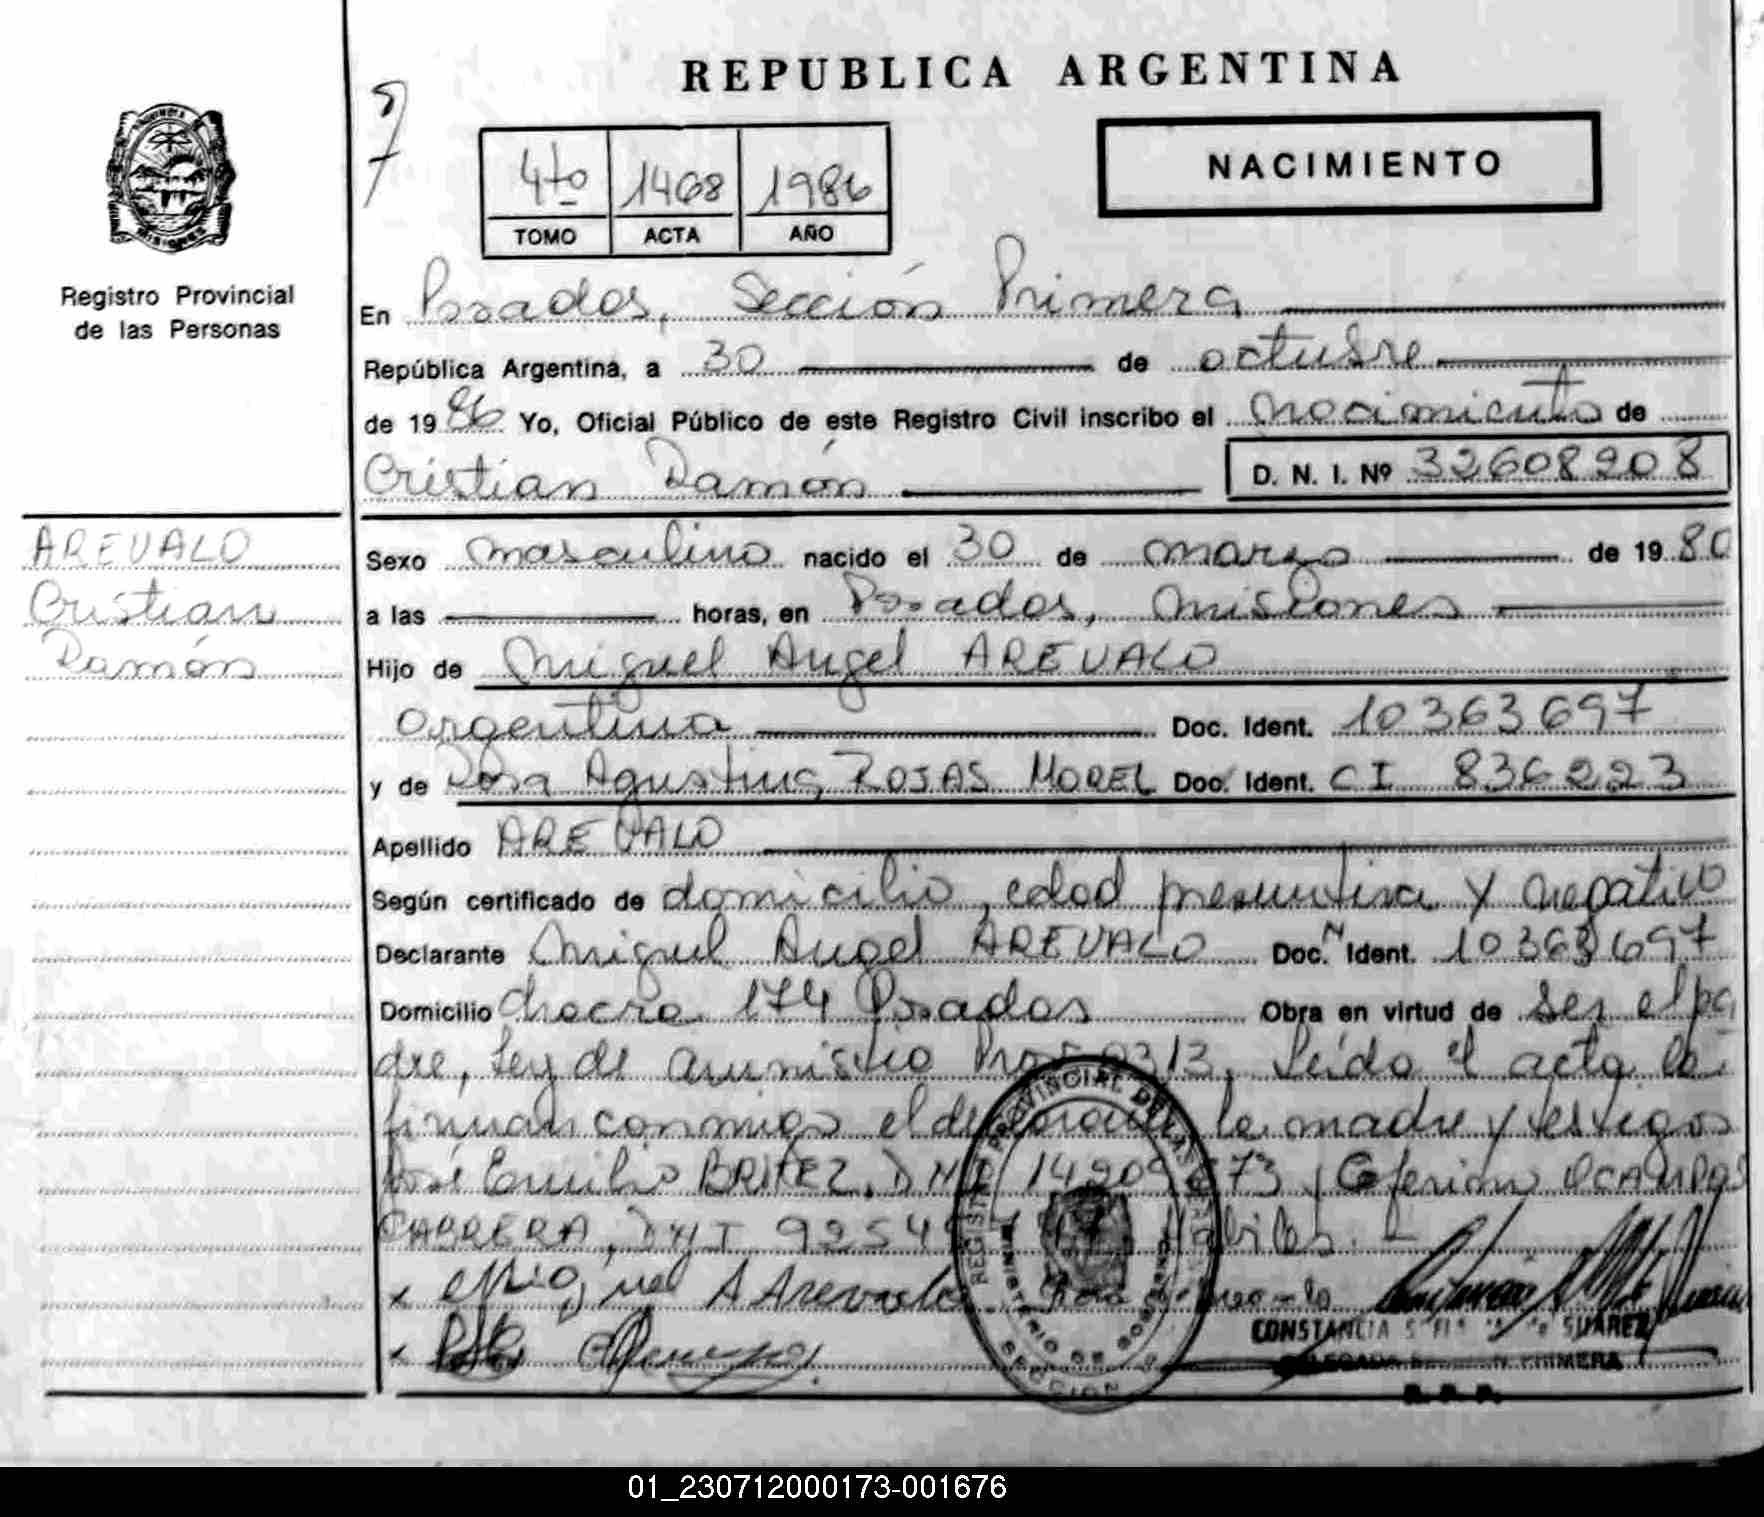 REPUBLICA ARGENTINA
NACIMIENTO
4to 1468 1986
TOMO ACTA AÑO
Registro Provincial
de las Personas
En Posadas, Sección Primera
República Argentina, a 30 de octubre
de 1986 Yo, Oficial Público de este Registro Civil inscribo el nacimiento de
Cristian Ramón D. N. I. Nº 32608208
AREVALO
Cristian
Ramón
Sexo masculino nacido el 30 de marzo de 1980
a las horas, en Posadas, Misiones
Hijo de Miguel Angel AREVALO
argentino Doc. Ident. 10363697
y de Rosa Agustina ROJAS MOREL Doc. Ident. CI 836223
Apellido AREVALO
Según certificado de domicilio, edad presuntiva y negativo
Declarante Miguel Angel AREVALO Doc. Ident. 10363697
Domicilio chacra 174 Posadas Obra en virtud de ser el pa
dre, Ley de amnistia Leído el acta la
firman conmigo el la madre y testigos
José Emilio BRITEZ, DNI y Ceferino OCAMPOS
CABRERA, DNI Hábiles.
Miguel A Arevalo
REGISTRO PROVINCIAL DE LAS
MINISTERIO DE GOBIERNO
SECCION
CONSTANCIA SUAREZ
PRIMERA
01_230712000173-001676